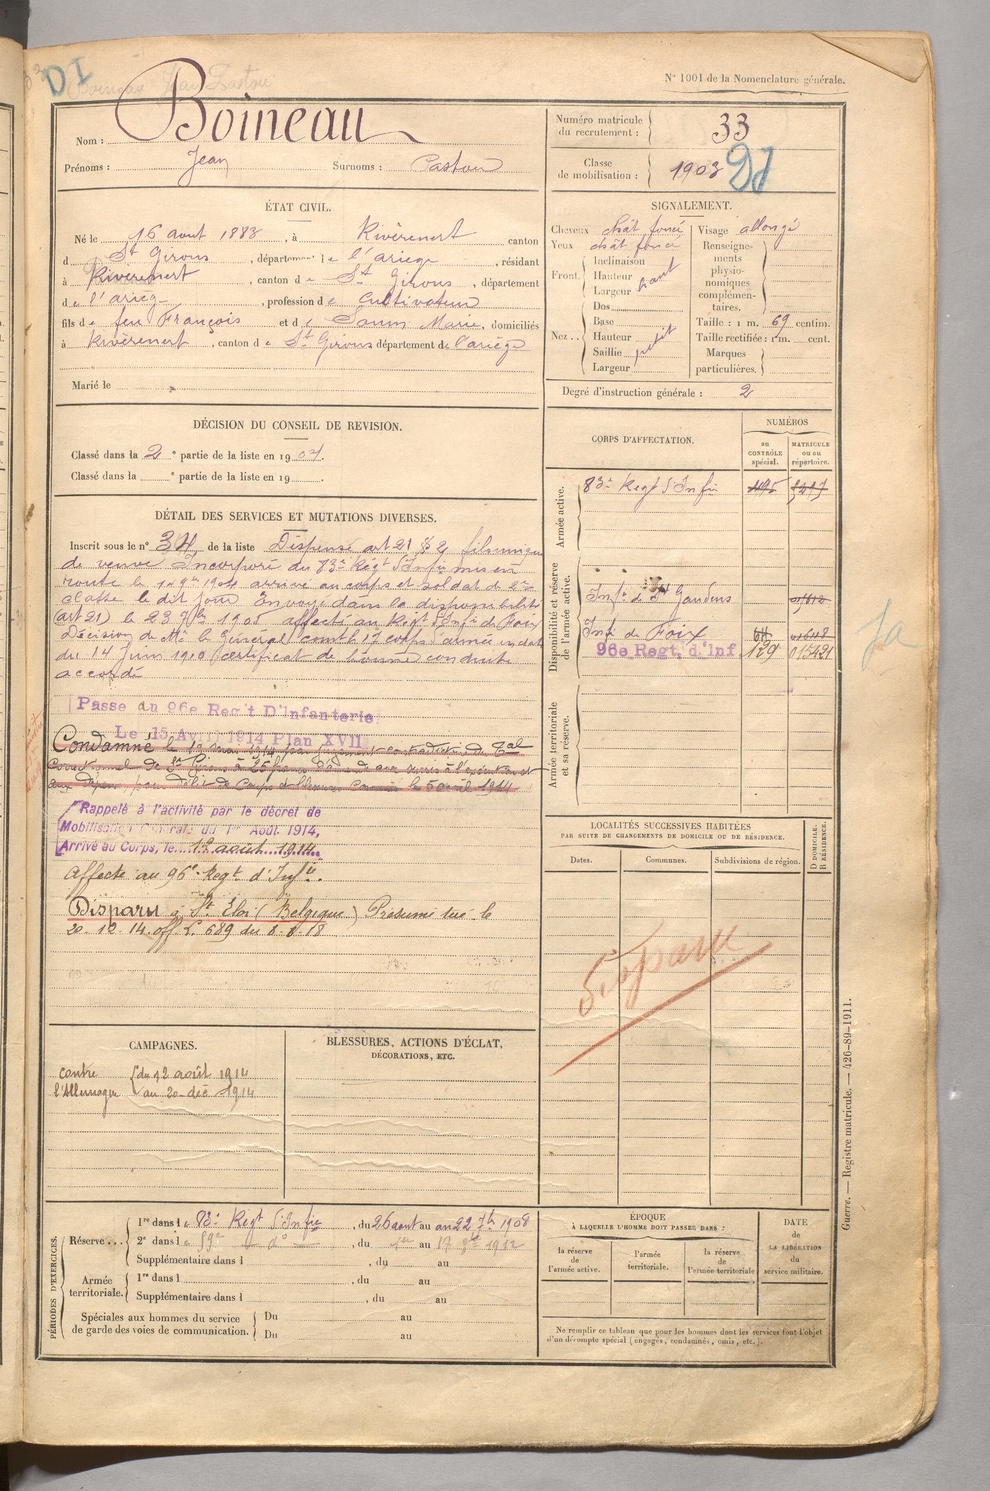 N° 1001 de la Nomenclature générale.
DI
Nom : Boineau
Prénoms : Jean Surnoms : Pastou
Numéro matricule du recrutement : 33
Classe de mobilisation : 1903
ÉTAT CIVIL.
Né le 16 aout 1883, à Rivèrenert canton
d St Girons, département de l'ariege, résidant
à Rivèrenert, canton de St Girons, département
de l'ariege, profession de Cultivateur
fils de feu François et de Marie, domiciliés
à Rivèrenert, canton de St Girons département de l'ariège
Marié le
SIGNALEMENT.
Cheveux chât foncé
Yeux chât foncé
Front. Inclinaison
Hauteur
Largeur
Nez .. Dos
Base
Hauteur
Saillie petit
Largeur
Visage allongé
Renseignements physionomiques complémentaires.
Taille : 1 m. 69 centim.
Taille rectifiée : 1 m. cent.
Marques particulières.
Degré d'instruction générale : 2
DÉCISION DU CONSEIL DE REVISION.
Classé dans la 2e partie de la liste en 1904.
Classé dans la e partie de la liste en 19 .
DÉTAIL DES SERVICES ET MUTATIONS DIVERSES.
Inscrit sous le n° 34 de la liste Dispensé art 21 § 2 fils unique
de veuve Incorporé du 83e Regt d'Infie mis en
route le 1904 arrivé au corps et soldat de 2me
classe le dit jour Envoyé dans la disponibilité
(art 21) le 23 7bre 1905 affecté au Regt d'Infie de Foix
Décision de Mr le Général comt le 17e corps d'armée en date
du 14 Juin 1910 certificat de bonne conduite
accordé
Passe au 96e Reg't D'Infanterie
Le 15 Avril 1914 Plan XVII
Condamné le 12 mai 1914 par jugement contradictoire du Tal
Correctionnel de St Girons à 25 francs d'amende avec sursis à l'exécution et
aux dépens, pour délit de Coups et blessures Commis le 5 avril 1914
Rappelé à l'activité par le décret de
Mobilisation Générale du 1er Août 1914,
Arrivé au Corps, le 12 août 1914.
Affecté au 96e Regt d'Infie.
Disparu à St Eloi (Belgique) Présumé tué le
20. 12. 14. off L. 689 du 8. 8. 18
CORPS D'AFFECTATION.
NUMÉROS
au CONTRÔLE spécial.
MATRICULE ou au répertoire.
Armée active.
83e Regt d'Infie
Disponibilité et réserve de l'armée active.
Infie de St Gaudens
Infie de Foix
96e Regt. d'Inf. 129 015421
Armée territoriale et sa réserve.
LOCALITÉS SUCCESSIVES HABITÉES
PAR SUITE DE CHANGEMENTS DE DOMICILE OU DE RÉSIDENCE.
Dates. Communes. Subdivisions de région. D DOMICILE. R RÉSIDENCE.
Disparu
CAMPAGNES.
contre l'Allemagne du 12 août 1914
au 20 déc 1914
BLESSURES, ACTIONS D'ÉCLAT,
DÉCORATIONS, ETC.
PÉRIODES D'EXERCICES.
Réserve ... 1re dans le 83e Regt d'Infie, du 26 aout au 22 7bre 1908
2e dans le 59e do, du 1er au 17 1912
Supplémentaire dans l , du au
Armée territoriale. 1re dans l , du au
Supplémentaire dans l , du au
Spéciales aux hommes du service de garde des voies de communication. Du au
Du au
ÉPOQUE
À LAQUELLE L'HOMME DOIT PASSER DANS :
la réserve de l'armée active.
l'armée territoriale.
la réserve de l'armée territoriale
DATE de LA LIBÉRATION du service militaire.
Ne remplir ce tableau que pour les hommes dont les services font l'objet
d'un décompte spécial (engagés, condamnés, omis, etc.).
Guerre. — Registre matricule. — 426-89-1911.